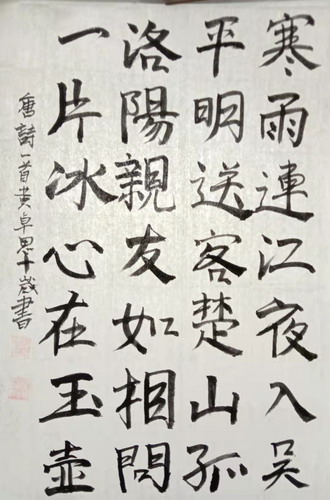 寒雨連江夜入吴
平明送客楚山孤
洛陽親友如相問
一片冰心在玉壺
唐詩一首黄卓思十歲書